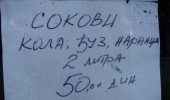 СОКОВИ
КОЛА, ЂУЗ, НАРАНЏА
2 ЛИТРА
50,00 ДИН